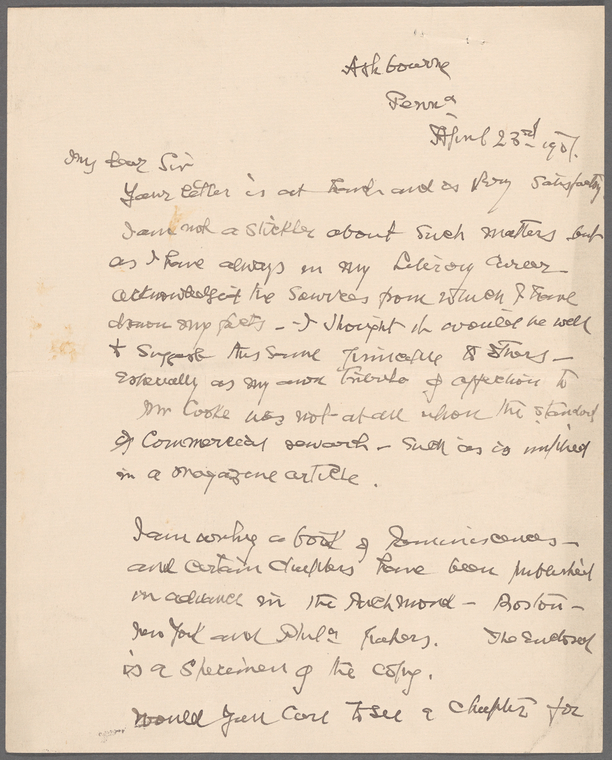 Ashbourne
Penna
April 23rd 1907.
My dear Sir
Your letter is at hand and is very satisfactory.
I am not a stickler about such matters but
as I have always in my Literary Career
acknowledged the sources from which I have
drawn my facts - I thought it would be well
to suggest this same principle to others -
especially as my own tribute of affection to
Mr Cooke was not at all upon the standard
of Commercial research - such as is implied
in a magazine article.
I am writing a book of Reminiscences -
and certain chapters have been published
in advance in the Richmond - Boston -
New York and Phila papers. The enclosed
is a specimen of the copy.
Would you care to see a chapter for